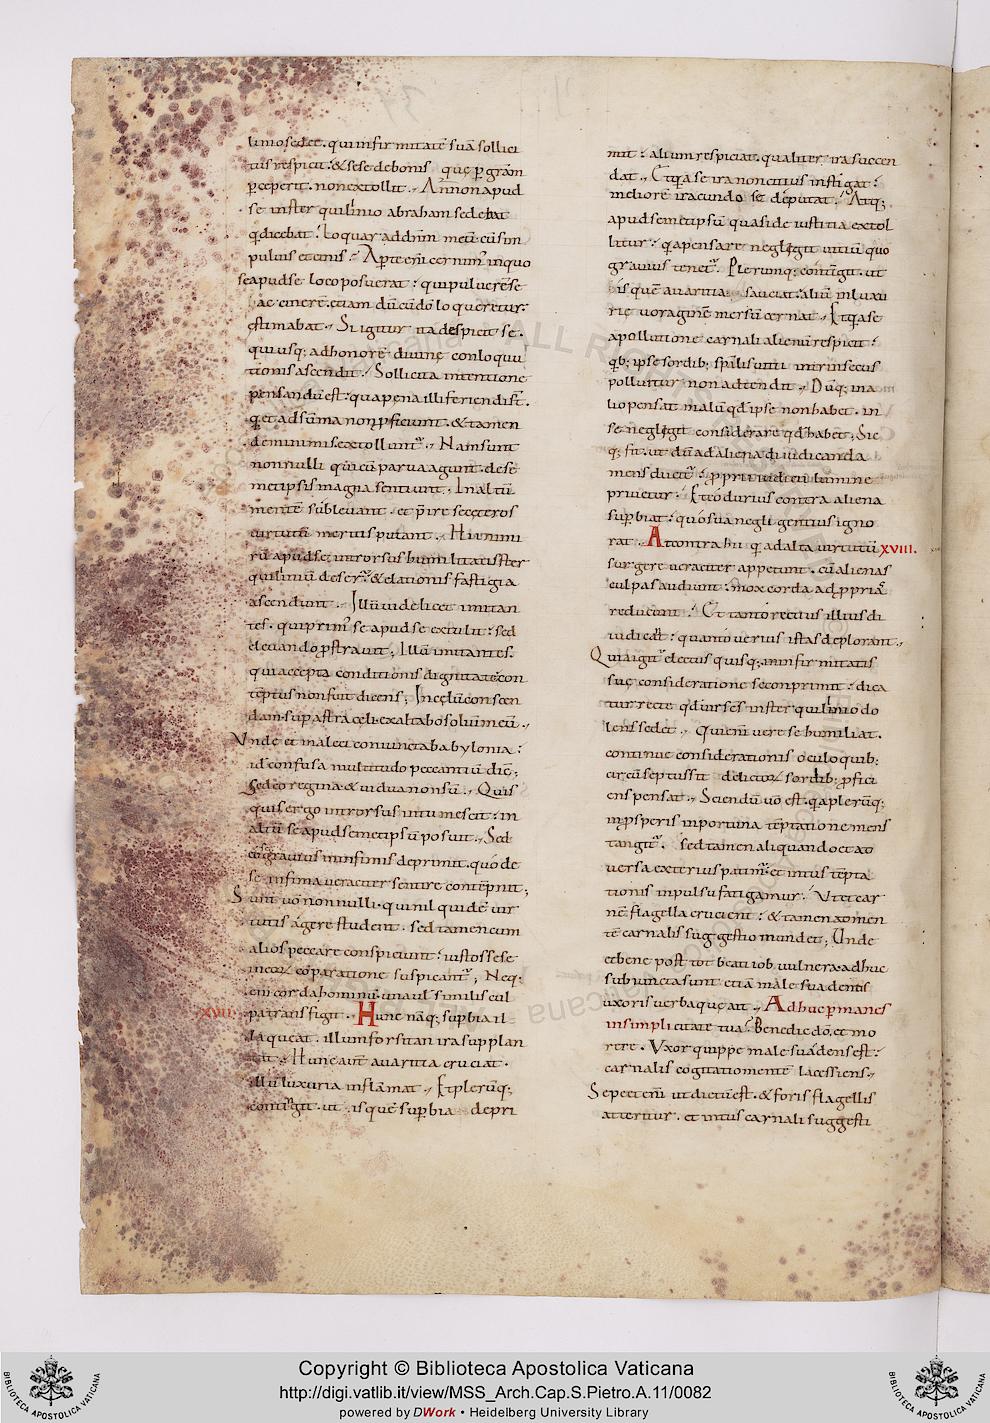 linio sedet. qui infirmitatē suā sollici
tus respicit. & se se de bonis quę ꝑ grām
ꝑceperit. non extollit. An non apud
se in ster quilinio abraham sedebat
qͥ dicebat. Loquar ad dnm meū cū sim
puluis et cinis. Aꝑte enī cernim᷒ in quo
se apud se loco posuerat. qui puluerē se
ac cinerē etiam dū cū dō loqueretur.
ęstimabat. Si igitur ita despicit se.
quisquis; ad honorē diuinę conloqu
tionis ascendit. Sollicita intentione
pensandū est. qua pena illi feriendi sī.
qͥ et ad sūma non ꝓficiunt. & tamen
de minimis extolluntͬ. Nam sunt
nonnulli qui cū parua agunt. de se
metipsis magna sentiunt. In altū
mentē subleuant. et p̄ire se ceteros
uirtutū meritis putant. Hi nimi
rū apud se; introrsus humilitatis ster
quiliniū deserͬ. & elationis fastigia
ascendunt. Illū uidelicet imitan
tes. qui primͬ se apud se extulit. sed
eleuando ꝓstrauit; Illū imitantes.
qui accepta conditionis dignitate con
temptus non fuit dicens; In cęlū conscen
dam. sup astra cęli exaltabo soliū meū.
Vnde et male ei coniuncta babylonia.
id confusa multitudo peccantiū dic̄;
Sedeo regina & uidua non sū. Quis
quis ergo introrsus intumescit. in
altū se apud semetipsū posuit. Sed
eo grauius in infimis deprimit. quo de
se infima ueraciter sentire contēpnit;
Sunt uō nonnulli. qui nil quidē uir
tutis agere student. sed tamen cum
alios peccare conspiciunt. iustos se se
in eoꝝ cōparatione suspicantͬ; Neq;
eni corda hominū una uel similis cul
pa transfigit. Hunc nāq; supbia il
laqueat. illum forsitan ira supplan
tat. Hunc aūt auaritia cruciat.
illū luxuria inflāmat. Et plerūq;
contingit. ut is quē supbia depri
mit. alium respiciat. qualiter ira succen
dat. Et qͥa se ira non citius instigat.
meliorē iracundo se deputat. Atq;
apud semetipsū quasi de iustitia extol
litur. qͥa pensare neglegit uitiū quo
grauius tenetͬ. Plerunq; contingit. ut
is quē auaritia sauciat. aliū in luxu
rię uoragine mersū cernat. Et qͥa se
a pollutione carnali alienū respicit.
qͥb; ipse sordib; spālis uitii intrinsecus
polluitur non adtendit. Dūq; in a
lio pensat malū qd ipse non habet. in
se neglegit considerare qd habet; Sic
q; fit. ut dū ad aliena diiudicanda
mens ducitͬ. ꝓprii iudicii lumine
priuetur. Et eo durius contra aliena
supbiat. quo sua negligentius igno
rat. At contra hii qͥ ad alta uirtutū XVIII.
surgere ueraciter appetunt. cū alienas
culpas audiunt. mox corda ad ꝓpriā
reducunt. Et tanto rectius illius di
iudicat. quanto uerius istas deplorant.
Quia igitͬ electus quisq; in infirmitatis
suę consideratione se conprimit. dica
tur recte qd iur ses in ster quilinio do
lens sedet. Qui enī uere se humiliat.
continue considerationis oculo quib;
circū septus sit delictoꝝ sordib; ꝓfici
ens pensat. Sciendū uō est. qͥa plerūq;
in ꝓsperis inportuna tēptatione mens
tangitͬ. sed tamen aliquando et ad
uersa exterius patimͬ. et intus tēpta
tionis inpulsu fatigamur. Vt et car
nē flagella crucient. & tamen ad men
tē carnalis suggestio inundet; Unde
et bene post tot beati iob uulnera. adhuc
subiuncta sunt etiā male suadentis
uxoris uerba que ait. Adhuc ꝑmanes
in simplicitate tua. Benedic dō. et mo
rere. Vxor quippe male suadens est.
carnalis cogitatio mentē lacessiens.
Sepe etenī ut dictū est. & foris flagellis
atterimur. et intus carnali suggesti
XVII.
Copyright © Biblioteca Apostolica Vaticana
http://digi.vatlib.it/view/MSS_Arch.Cap.S.Pietro.A.11/0082
powered by DWork • Heidelberg University Library
BIBLIOTECA APOSTOLICA VATICANA
BIBLIOTECA APOSTOLICA VATICANA